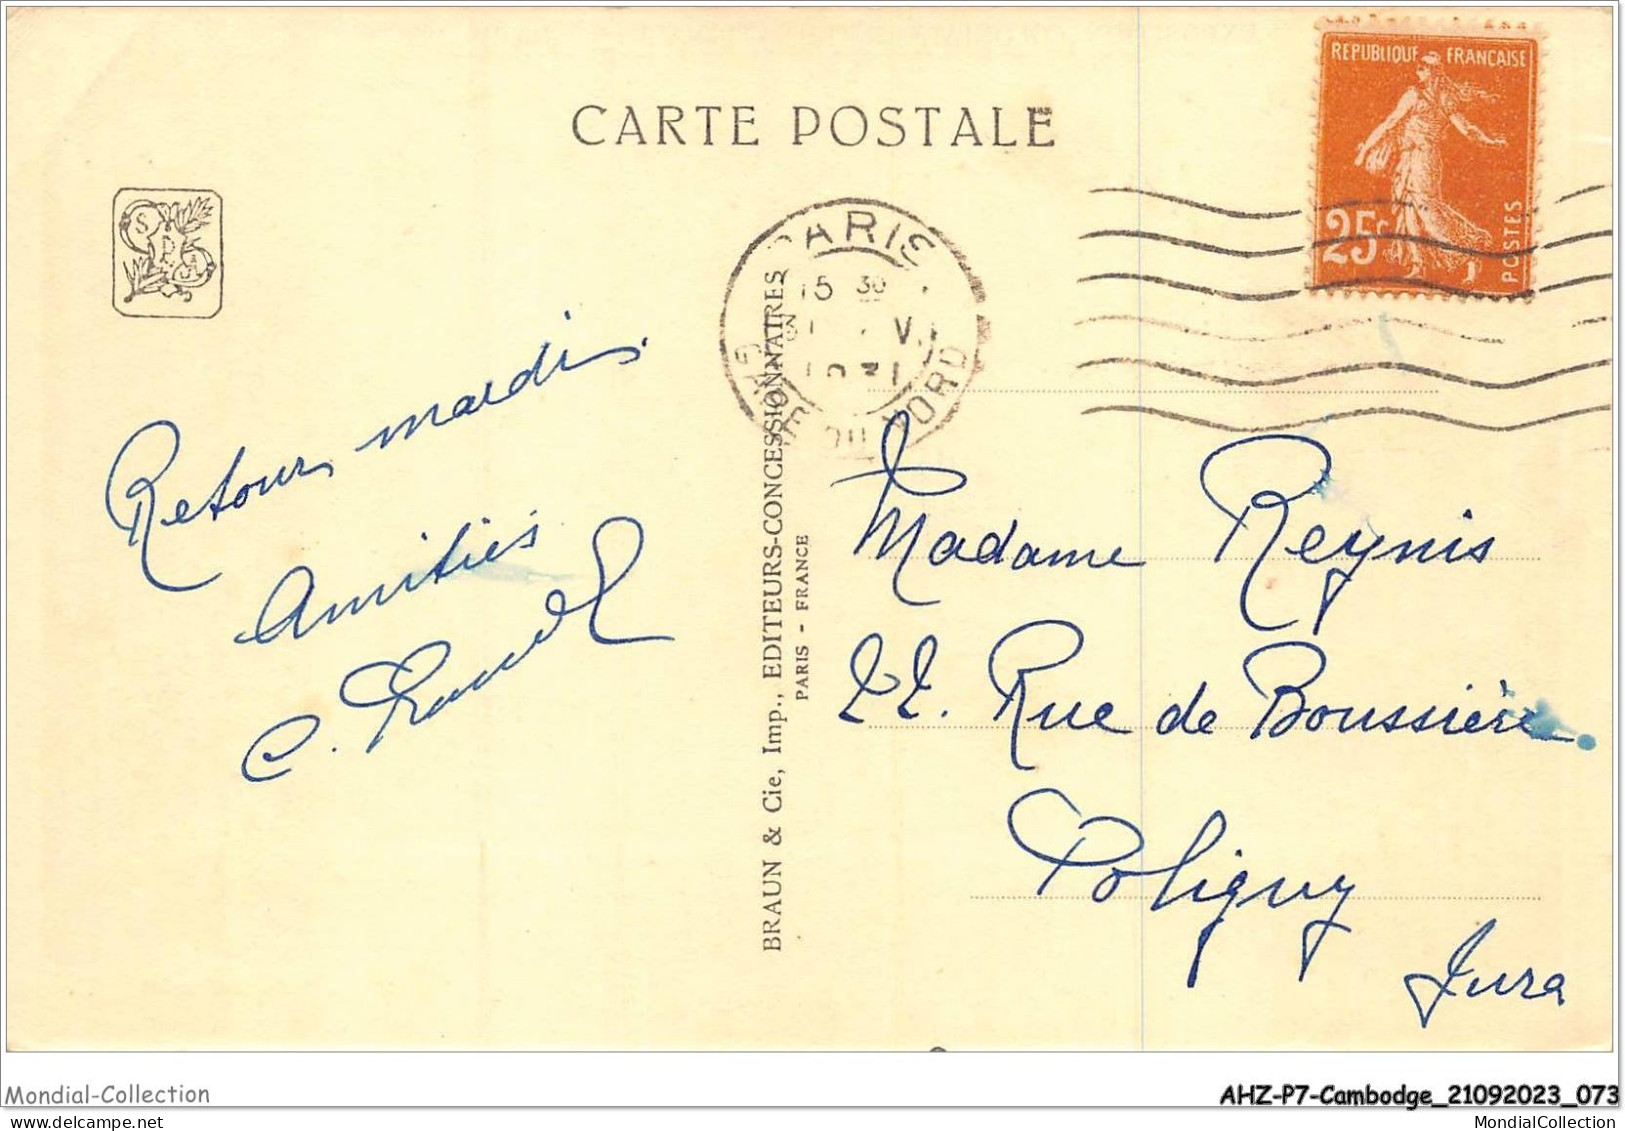 CARTE POSTALE
REPUBLIQUE FRANCAISE
25c
POSTES
S
P
A
PARIS
15 30
V
1931
GARE DU NORD
BRAUN & Cie, Imp., EDITEURS-CONCESSIONNAIRES
PARIS - FRANCE
Retour mardi
Amitiés
C.
Madame Reynis
22. Rue de Boussière
Poligny
Jura
Mondial-Collection
AHZ-P7-Cambodge_21092023_073
MondialCollection